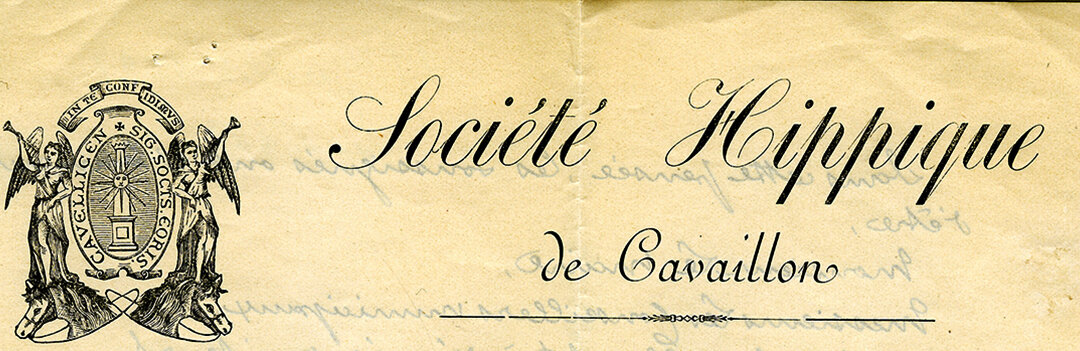 IN TE CONFIDIMUS
SIG. SOCTS. EQRIS. CAVELLICEN
Société Hippique
de Cavaillon